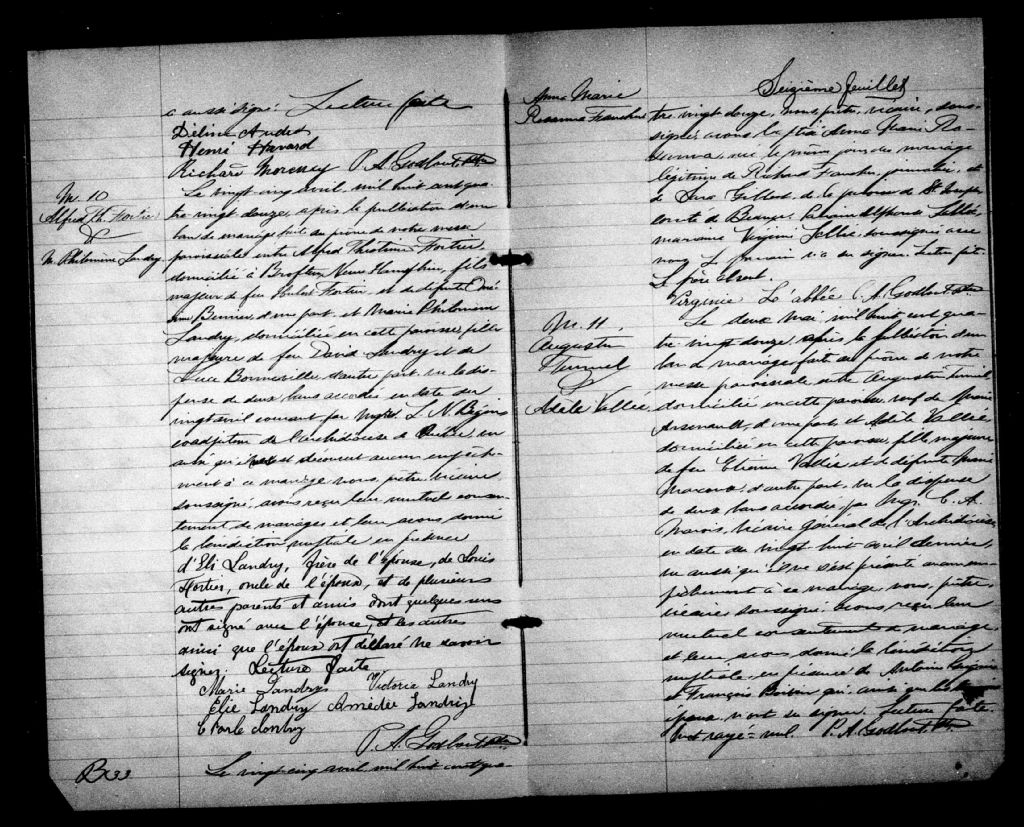 a aussi signé. Lecture faite
Délina Audet
Henri Havard
Richard Morency P. A. Godbout Ptre
M. 10
Alfred Th. Fortier
&
M. Philomène Landry
Le vingt cinq avril, mil huit cent qua-
tre vingt douze, après la publication d'un
ban de mariage faite au prône de notre messe
paroissiale entre Alfred Théotime Fortier
domicilié à New Hampshire, fils
majeur de feu Fortier, et de défunte
Bernier d'une part, et Marie Philomène
Landry, domiciliée en cette paroisse, fille
majeure de feu David Landry et de
Luce Bonneville, d'autre part, vu la dis-
pense de deux bans accordée en date du
vingt avril courant par Mgr L. N. Bégin
coadjuteur de l'archidiocèse de Québec, vu
aussi qu'il découvert aucun empêche-
ment à ce mariage, nous, prêtre, vicaire
soussigné, avons reçu leur mutuel consen-
tement de mariage et leur avons donné
la bénédiction nuptiale en présence
d'Eli Landry, frère de l'épouse, de Louis
Fortier, oncle de l'époux, et de plusieurs
autres parents et amis dont quelques uns
ont signé avec l'épouse, et les autres
ainsi que l'époux ont déclaré ne savoir
signer. Lecture faite
Marie Landry Victoria Landry
Elie Landry Amédée Landry
P. A. Godbout Ptre
Le vingt cinq avril mil huit cent qua-
Seizième feuillet
Anna Marie
Rosanna
tre vingt douze, nous prêtre, vicaire, sous-
signé, avons baptisé Anna Marie Ro-
sanna, née le même jour, du mariage
légitime de Richard journalier, et
de Gilbert, de la paroisse de St Joseph
comté de Beauce. Parrain Alphonse
marraine Virginie soussignée avec
nous. Le parrain n'a su signer. Lecture faite.
Le père absent.
Virginie L'abbée P. A. Godbout Ptre
M. 11.
Augustin
&
Adèle Vallée
Le deux Mai, mil huit cent qua-
tre-vingt douze, après la publication d'un
ban de mariage, faite au prône de notre
messe paroissiale entre Augustin
domicilié en cette paroisse, veuf de Marie
Arsenault, d'une part, et Adèle Vallée
domiciliée en cette paroisse, fille majeure
de feu Etienne Vallée et de défunte Marie
d'autre part, vu la dispense
de deux bans accordée par Mgr. C. A.
Marois, vicaire général de l'Archidiocèse
en date du vingt huit avril dernier,
vu aussi qu'il ne s'est présenté aucun em-
pêchement à ce mariage, nous, prêtre
vicaire soussigné avons reçu leur
mutuel consentement de mariage
et leur avons donné la bénédiction
nuptiale, en présence de Antoine
et François qui, ainsi que les
époux, n'ont su signer. Lecture faite.
mot rayé nul. P. A. Godbout Ptre